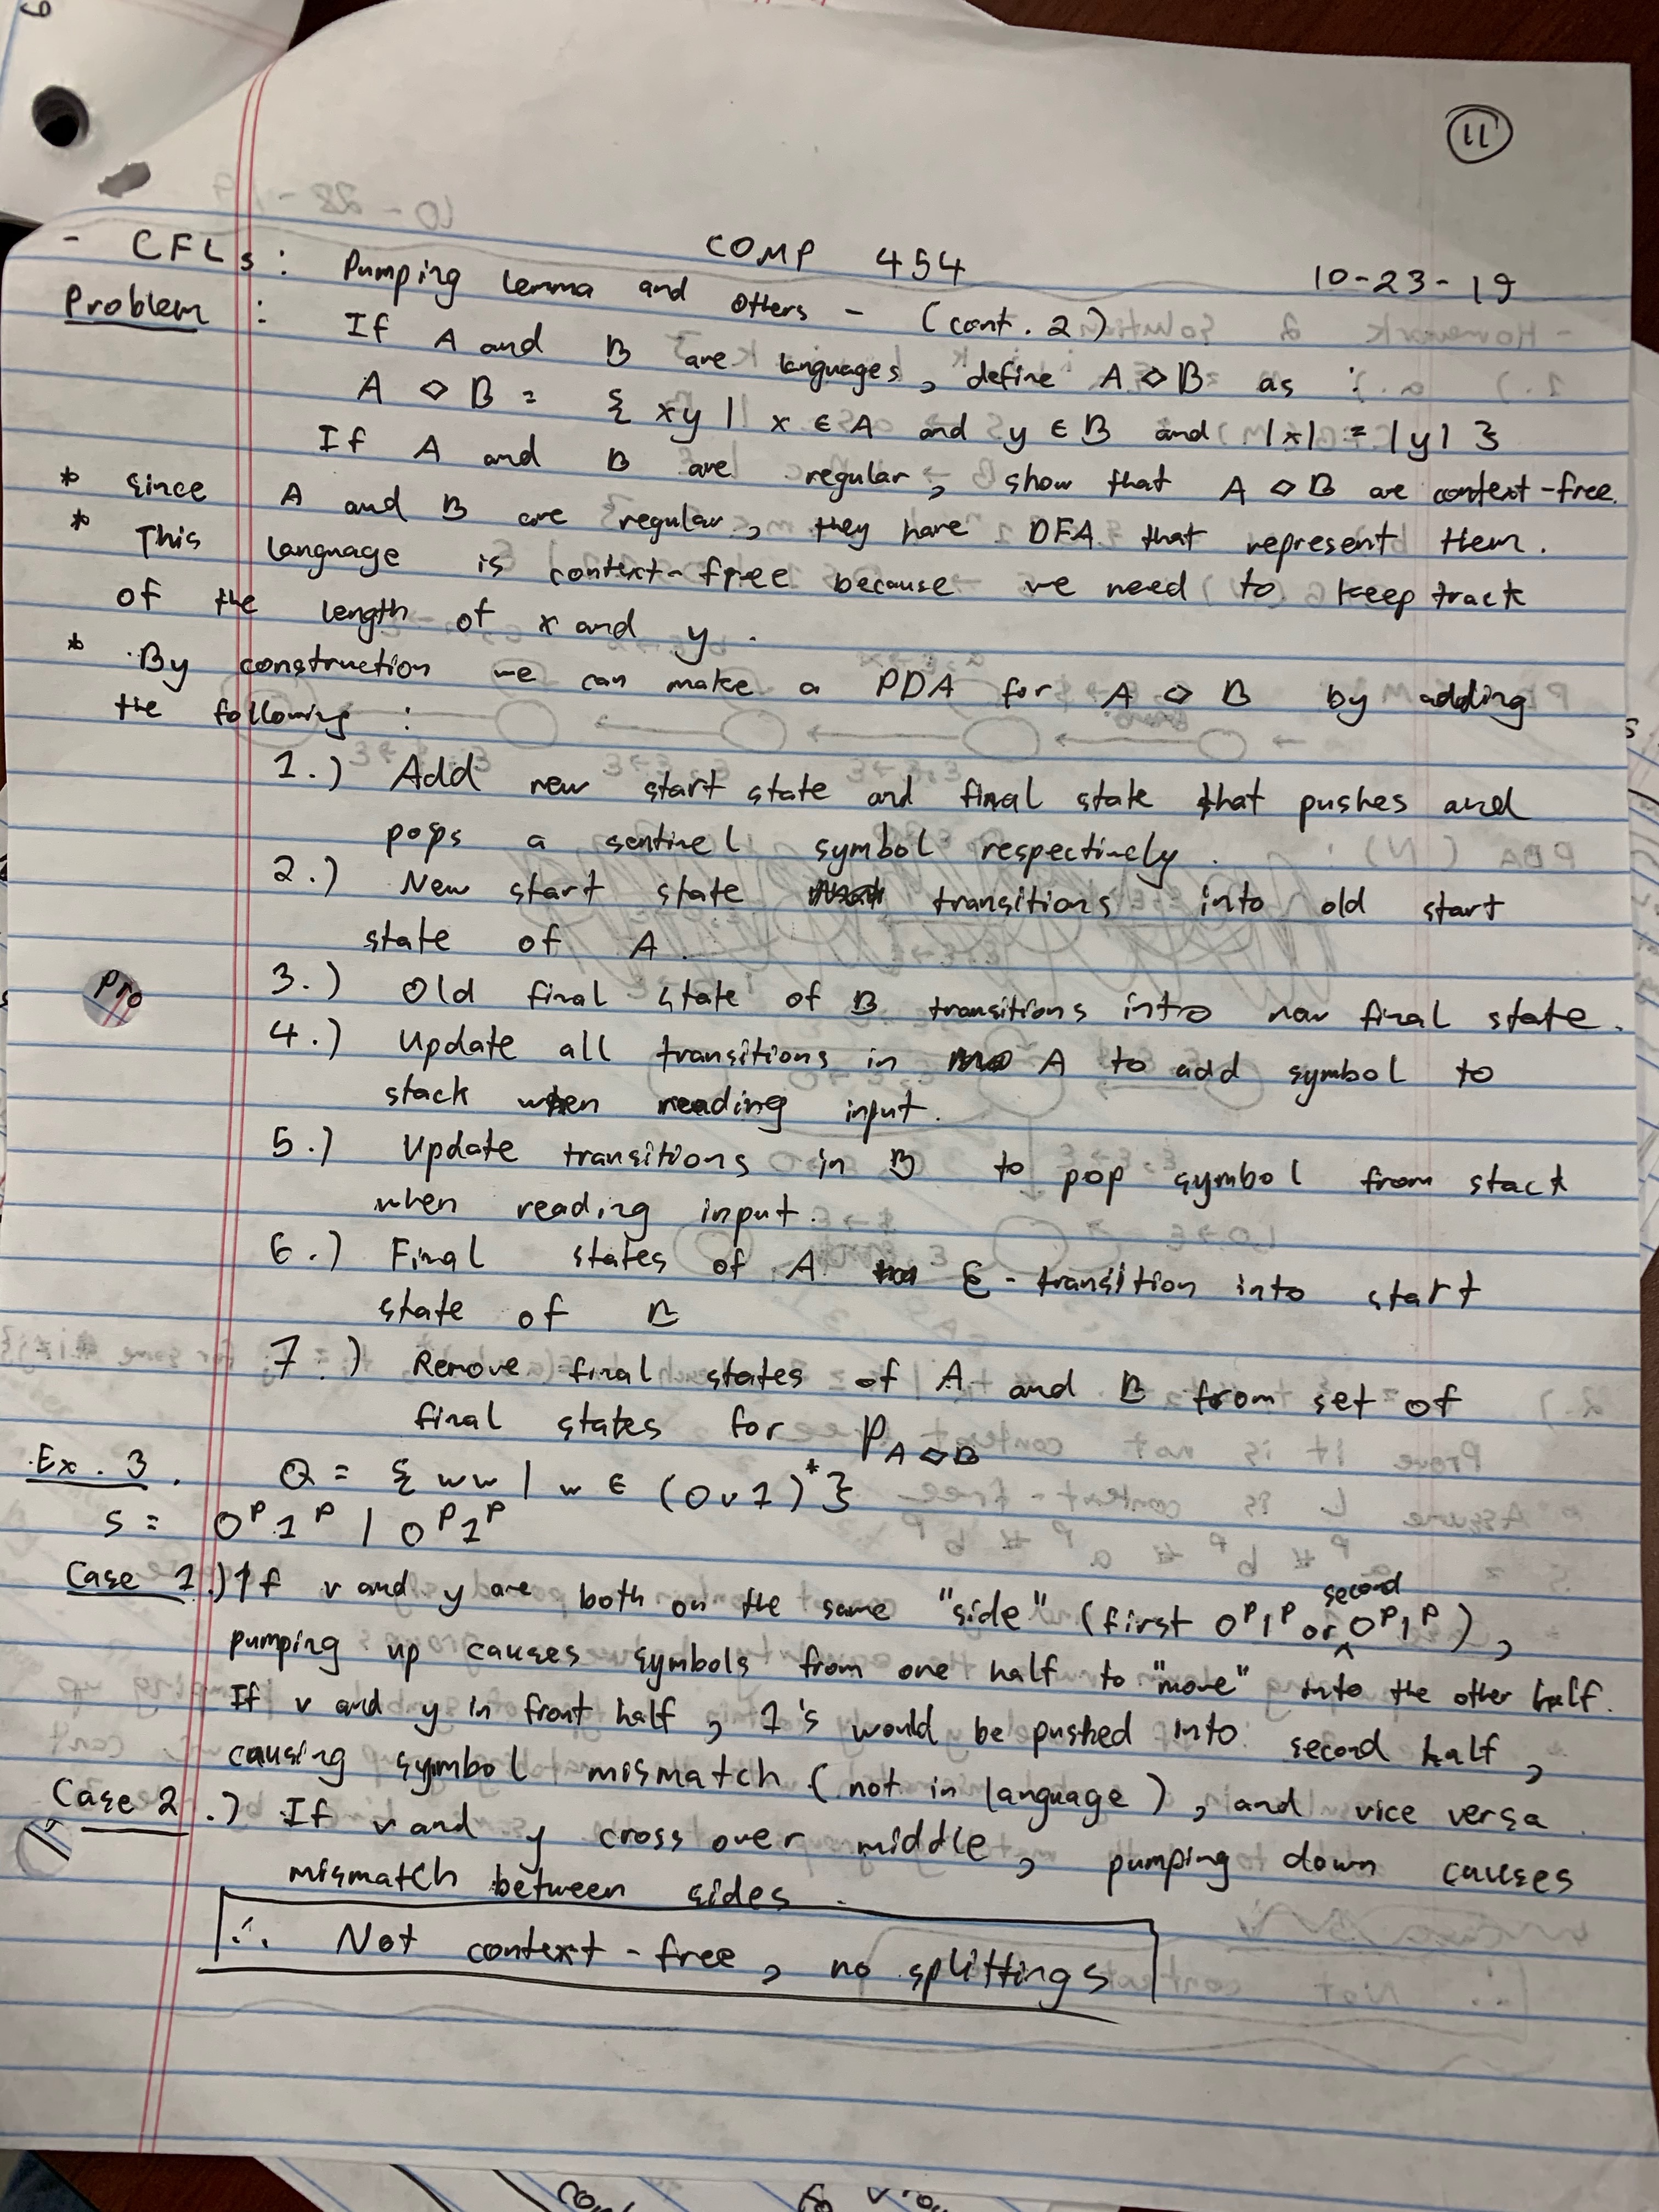 11
COMP 454
10-23-19
- CFLs: Pumping lemma and others - (cont. 2)
Problem: If A and B are languages, define A ◇ B as :
A ◇ B = { xy | x ∈ A and y ∈ B and |x| = |y| }
If A and B are regular, show that A ◇ B are context-free.
* Since A and B are regular, they have DFA that represent them.
* This language is context-free because we need to keep track
of the length of x and y.
* By construction we can make a PDA for A ◇ B by adding
the following :
1.) Add new start state and final state that pushes and
pops a sentinel symbol respectively.
2.) New start state transitions into old start
state of A.
3.) Old final state of B transitions into new final state.
4.) Update all transitions in A to add symbol to
stack when reading input.
5.) Update transitions in B to pop symbol from stack
when reading input.
6.) Final states of A ε-transition into start
state of B
7.) Remove final states of A and B from set of
final states for P_{A◇B}
Pro
Ex. 3. Q = { ww | w ∈ (0∪1)* }
s = 0^P 1^P | 0^P 1^P
Case 1.) If v and y are both on the same "side" (first 0^P1^P or second 0^P1^P),
pumping up causes symbols from one half to "move" into the other half.
If v and y in front half, 1's would be pushed into second half,
causing symbol mismatch (not in language), and vice versa.
Case 2.) If v and y cross over middle, pumping down causes
mismatch between sides.
∴ Not context-free, no splittings